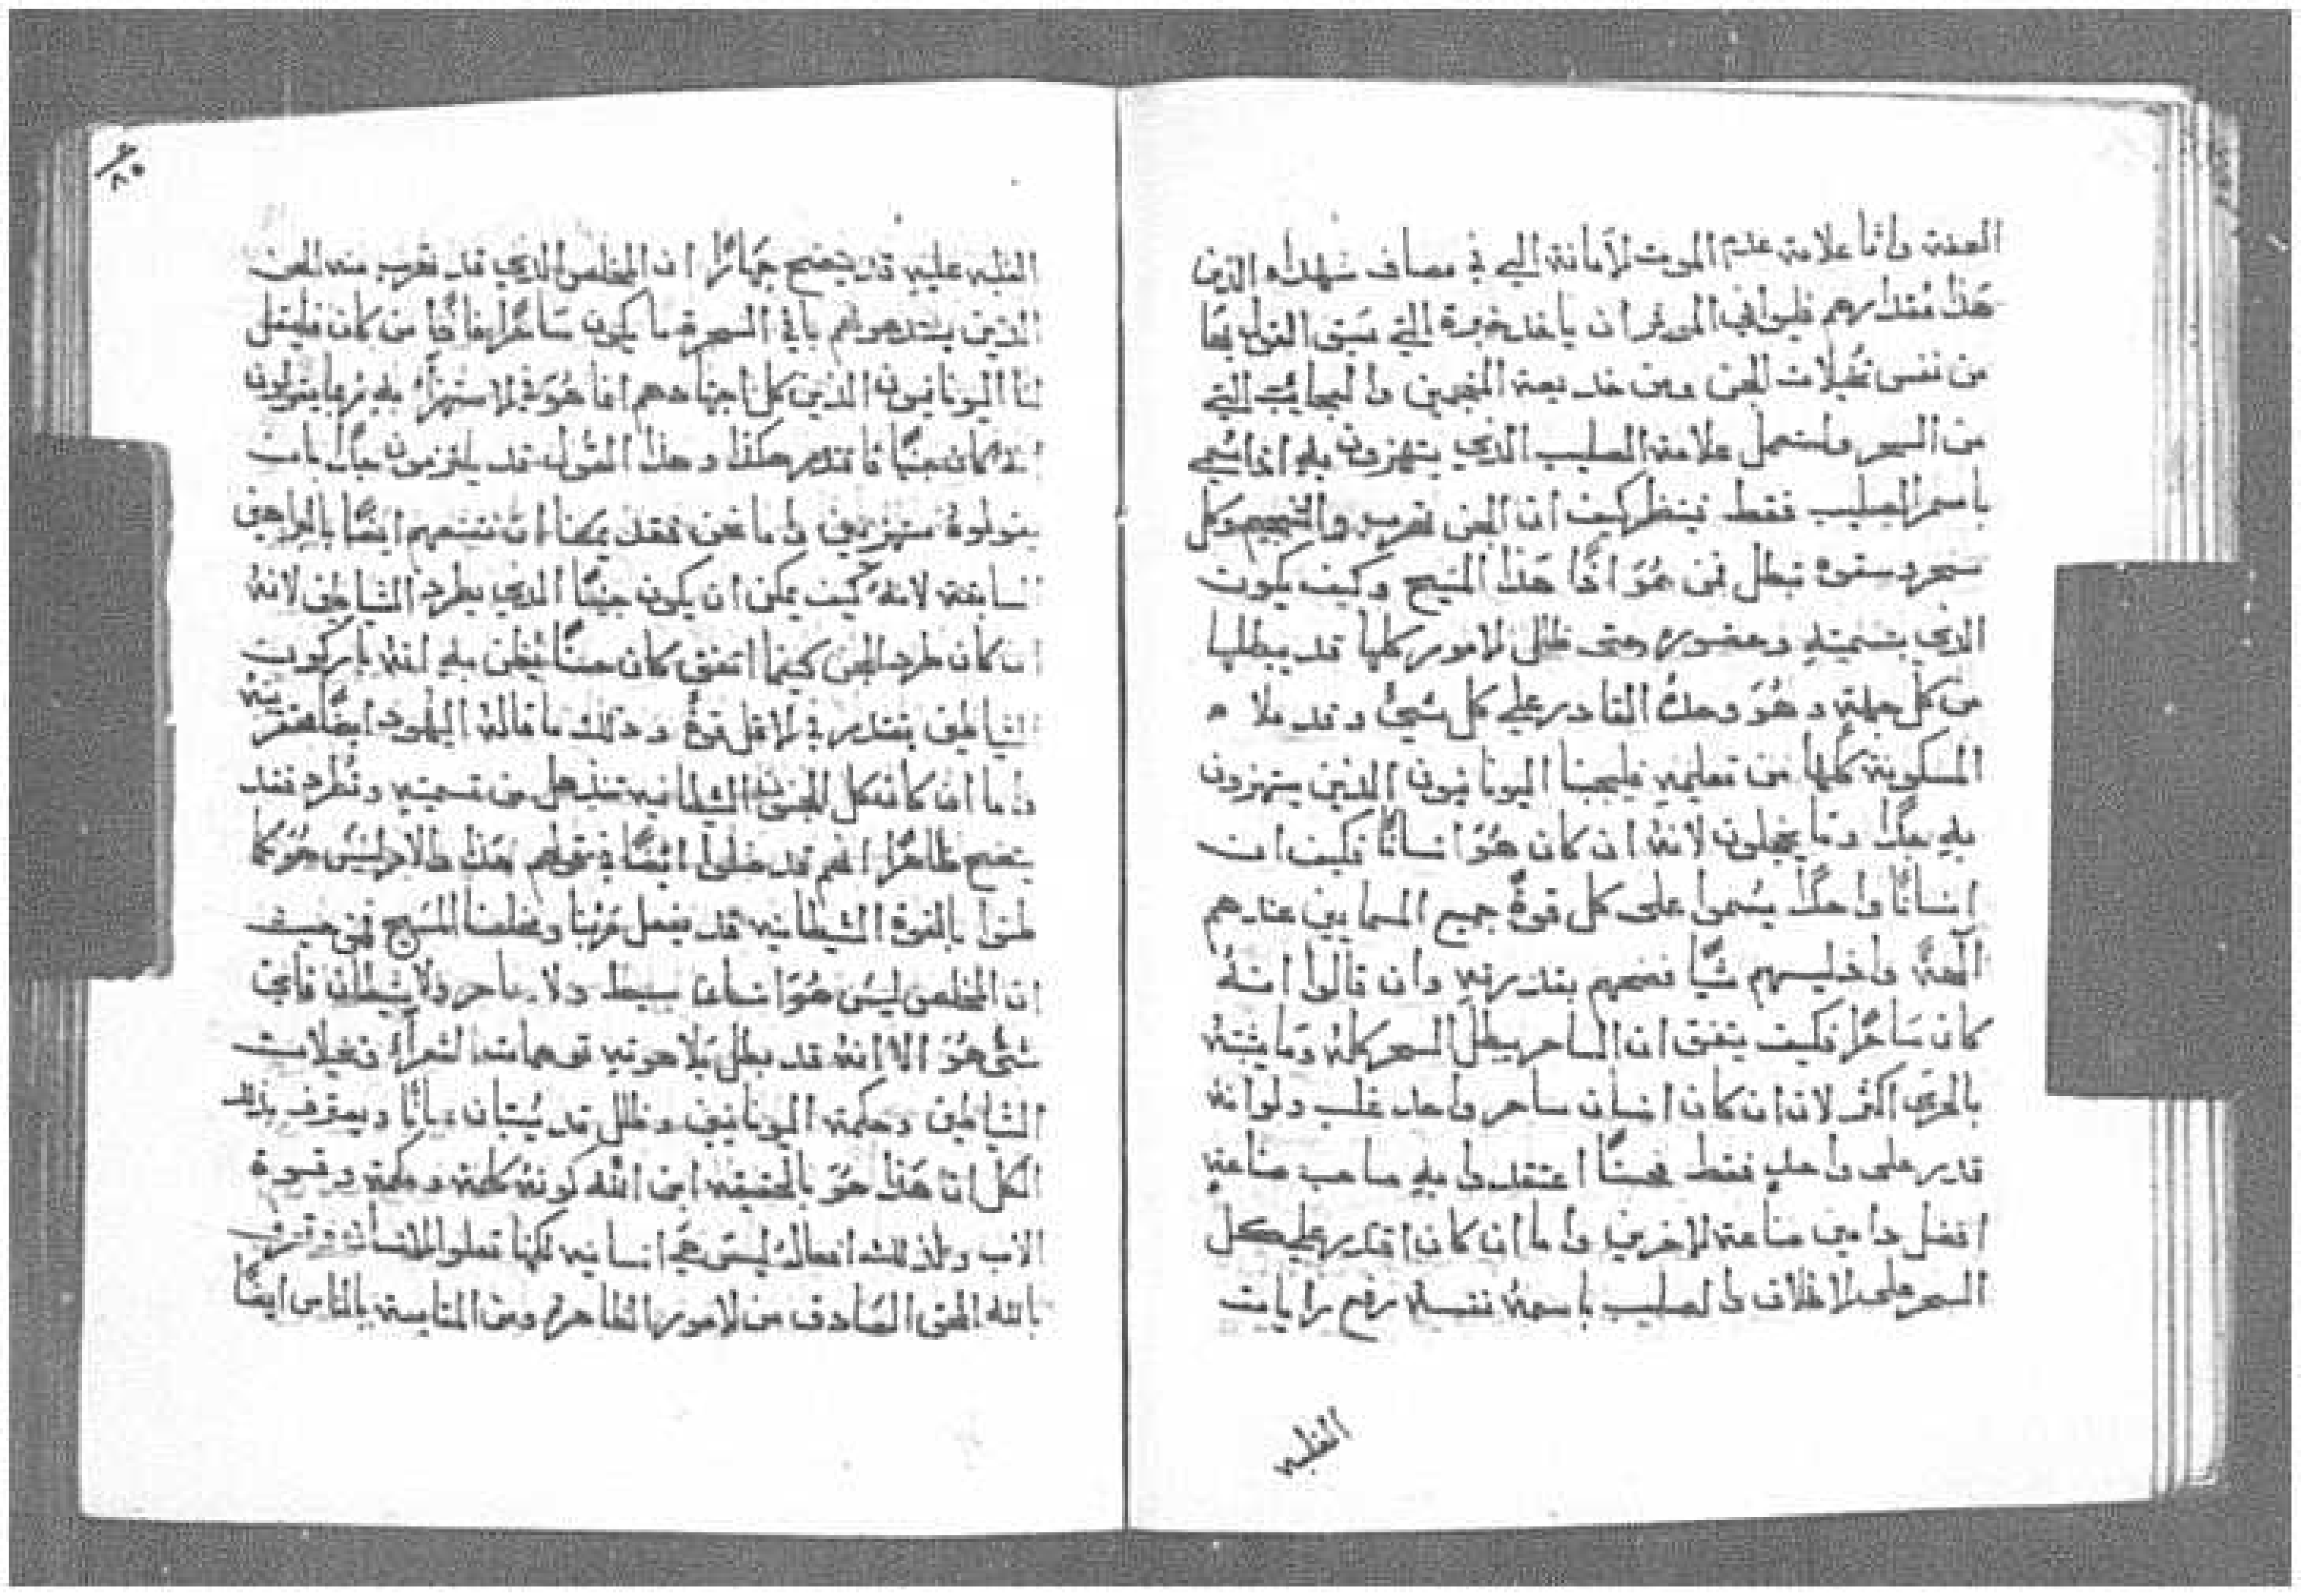 العفة واما علامة عدم الموت الامانة التي في مصاف شهداء الذين
هذا مقدارهم فليوافي المورثر ان ياخذ خبرة التي سبق القول بها
من نفس تخيلات الجن ومن خديعة المنجمين والعجائب التي
من السحر وليستعمل علامة الصليب الذي يتهزون به اذا سُمي
باسم الصليب فقط فينظر كيف ان الجن تهرب والتنجيم وكل
سحر وسقوة تبطل فمن هُوَ اذًا هَذا المسيح وكيف يكون
الذي بتسميته وحضوره حتى ظلل الامور كلها قد يبطلها
من كل جهة وهُوَ وحدهُ القادر على كل شيٍ وقد ملاء
المسكونة كلها من تعليمه فليجبنا اليونانيون الذين يستهزون
به جدًا وما يخجلون لانه ان كان هُوَ انسانًا فكيف ان
انسانًا واحدًا يسموا على كل قوة جميع المسمايين عندهم
آلهةً واذ ليسهم شيًا فضحهم بقدرته وان قالوا انهُ
كان سَاحرًا فكيف يتفق ان الساحر يبطل السحر كله وما يثبته
بالحري اكثر لان ان كان انسان ساحر واحد غلب ولو انه
قدر على واحدٍ فقط فحسنًا اعتقدوا به صاحب صناعةٍ
افضل دامين صناعة الاخرين واما ان كان اقتدر على كل
السحر على الاطلاق والصليب باسمه نفسه رفع رايات
الغلبه
الغلبه عليه قد يتضح جهارًا ان المخلص الذي قد تهرب منه الجن
الذين يستدعوهم باقي السحرة ما يكون سَاحرًا فاذًا من كان فليقل
لنا اليونانيون الذين كل اجتهادهم انما هُوَ في الاستهزأ به نعما يقولون
انه كان جنيًا فاقتدر هكذا وهذا القول قد يلتزمون جدًا بان
يقولوهُ مستهزيين واما نحن فقد يمكنا ان نقنعهم ايضًا بالبراهين
السابقة لانهُ كيف يمكن ان يكون جنيًا الذي يطرد الشياطين لانهُ
ان كان طرد الجن كيفما اتفق كان حسنًا يُظن به انه باركون
الشياطين يقتدر في الاقل قوةً وذلك ما قاله اليهود ايضًا مفتريين
واما ان كانت كل الجنون الشيطانيه تنذهل من تسميته وتُطرد فقد
يتضح ظاهرًا انهم قد ضلوا ايضًا في قولهم هَذا والاله ليسَ هُوَ كما
ظنوا بالقوة الشيطانيه قد يفعل مَربُنا ومخلصنا المسَيح فمن حيث
ان المخلص ليسَ هُوَ انسان بسيط ولا ساحر ولا شيطان فاي
شيٍ هُوَ الا انه قد بطل بلاهوته توهمات الشعرآء وتخيلات
الشياطين وحكمة اليونانيين وظلل قد يُستبان عيانًا ويعترف بذلك
الكل ان هَذا هُوَ بالحقيقه ابن الله كونه كلمة وحكمة وقوة
الاب ولذلك افعاله ليسَت هي انسانيه لكنها تعلوا الانسان وتعرف
بالله الحق الصَادق من الامور الظاهرة ومن المقايسة بالناس ايضًا